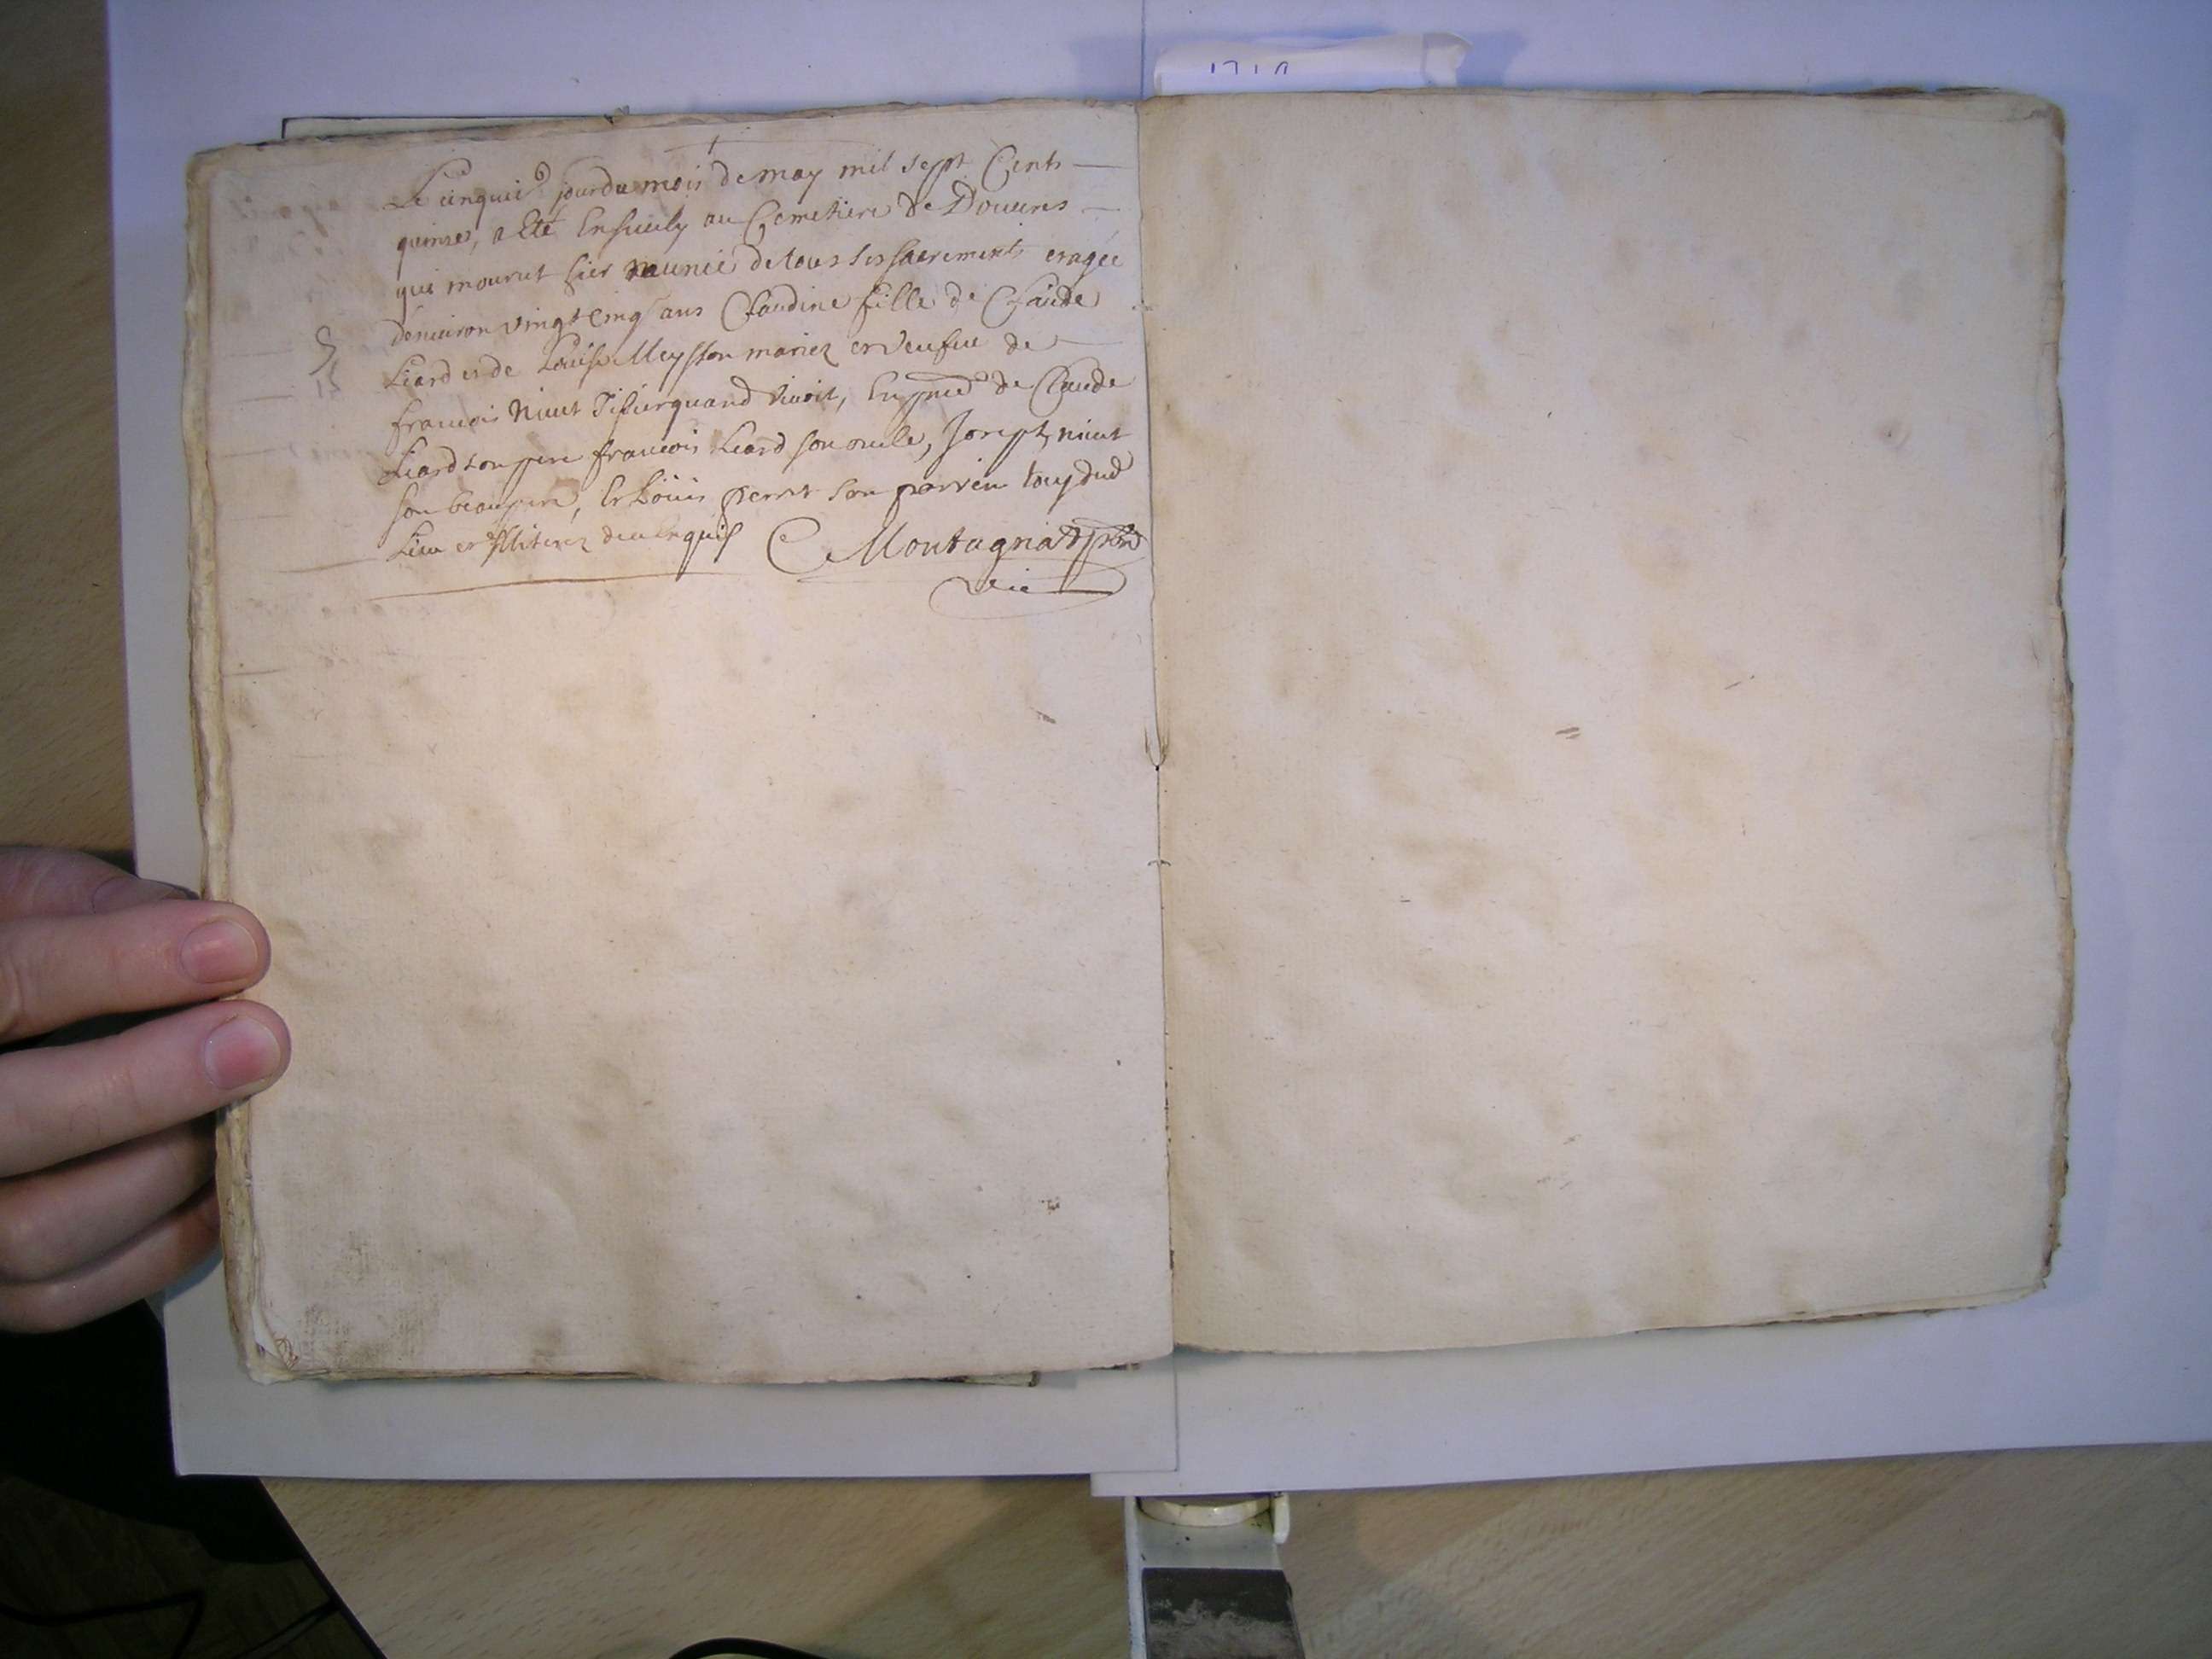 Le cinquie jour du mois de may mil sept Cents
quinze, a Eté Enseuely au Cemetiere de Douures
qui mourut hier munie de tous ses sacrements et agée
denuiron vingt cinq ans Claudine fille de Claude
Liard et de Louise mariez et veufue de
francois Niuet quand viuoit, En de Claude
Liard son pere francois Liard son oncle, Joseph niuet
son beaupere, Et Loüis perret son parrein tous dud
Lieu et illiterez de ce enquis C Montagnat